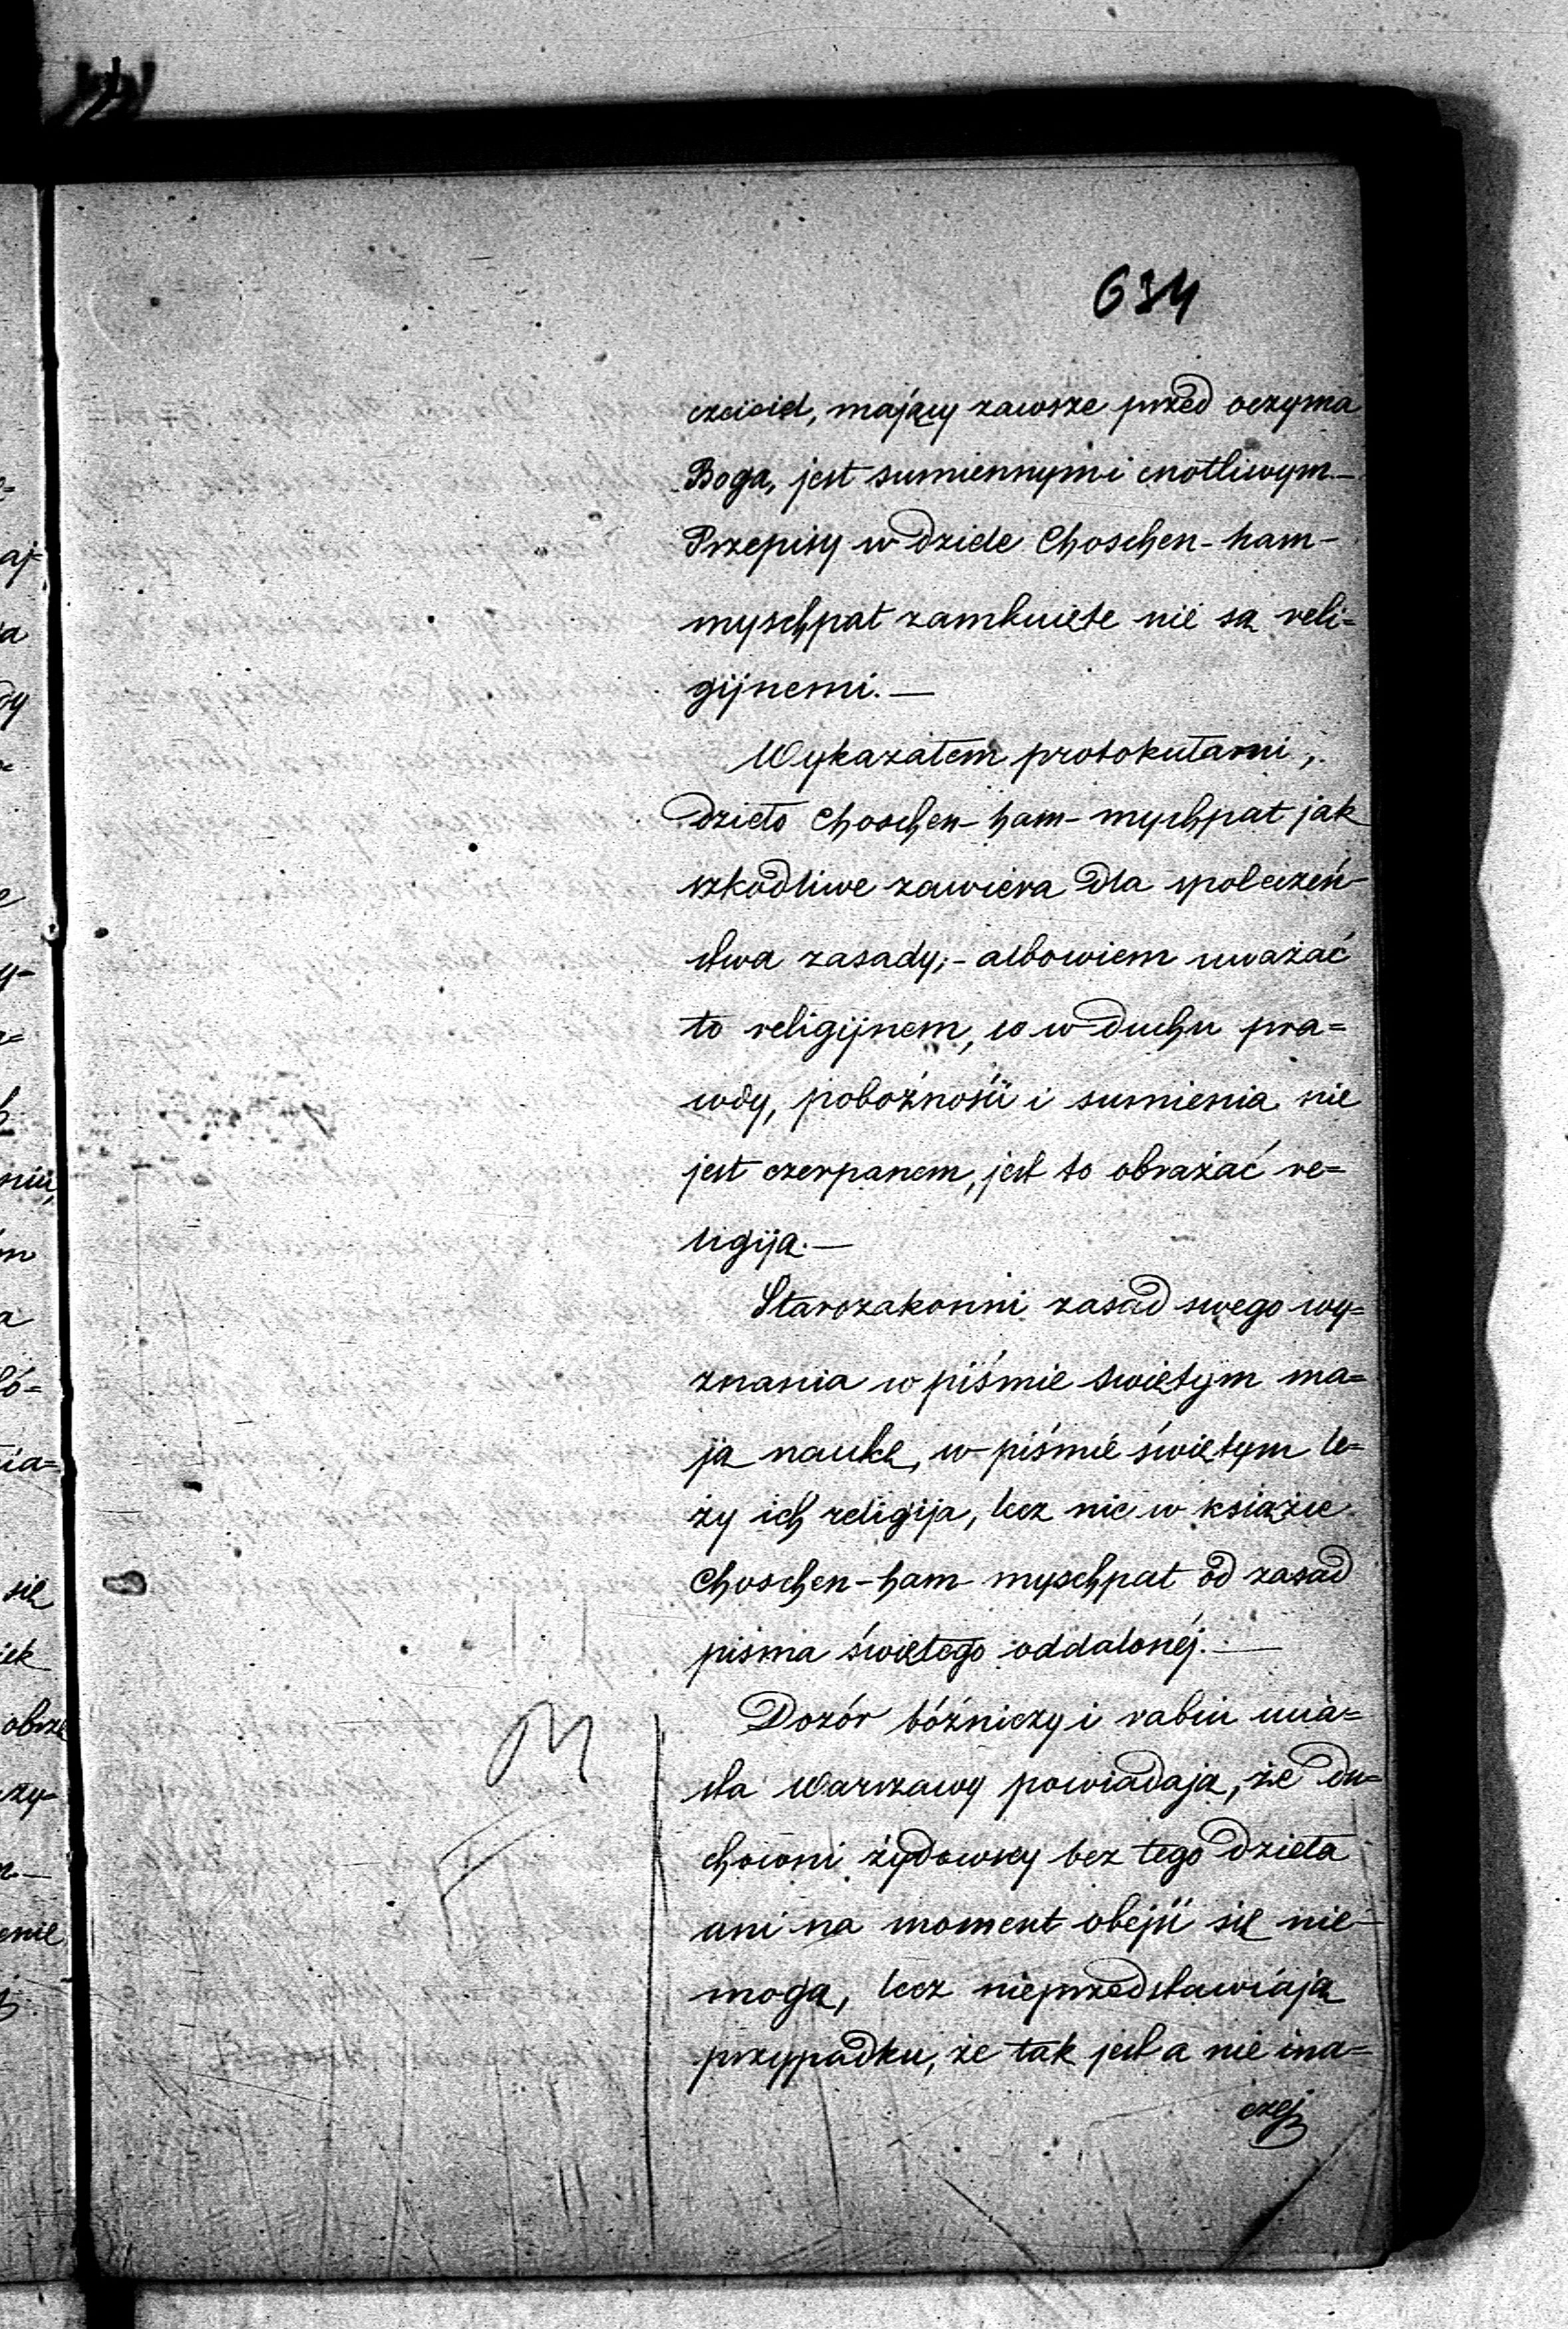 634
czciciel, mający zawsze przed oczyma
Boga, jest sumiennym i cnotliwym.—
Przepisy w dziele Choschen-ham-
myschpat zamknięte nie są reli=
gijnemi.—
Wykazałem protokułami,
dzieło Choschen-ham-myschpat jak
szkodliwe zawiera dla społeczeń-
stwa zasady;- albowiem uważać
to religijnem, co w duchu pra=
wdy, pobożności i sumienia nie
jest czerpanem, jest to obrażać re=
ligiją.—
Starozakonni zasad swego wy=
znania w piśmie świętym ma=
ją naukę, w piśmie świętym le=
ży ich religija, lecz nie w książce
Choschen-ham-myschpat od zasad
pisma świętego oddalonéj.—
Dozór bóżniczy i rabin mia=
sta Warszawy powiadają, że du=
chowni żydowscy bez tego dzieła
ani na moment obejść się nie-
mogą, lecz nieprzedstawiają
przypadku, że tak jest a nie ina=
czej